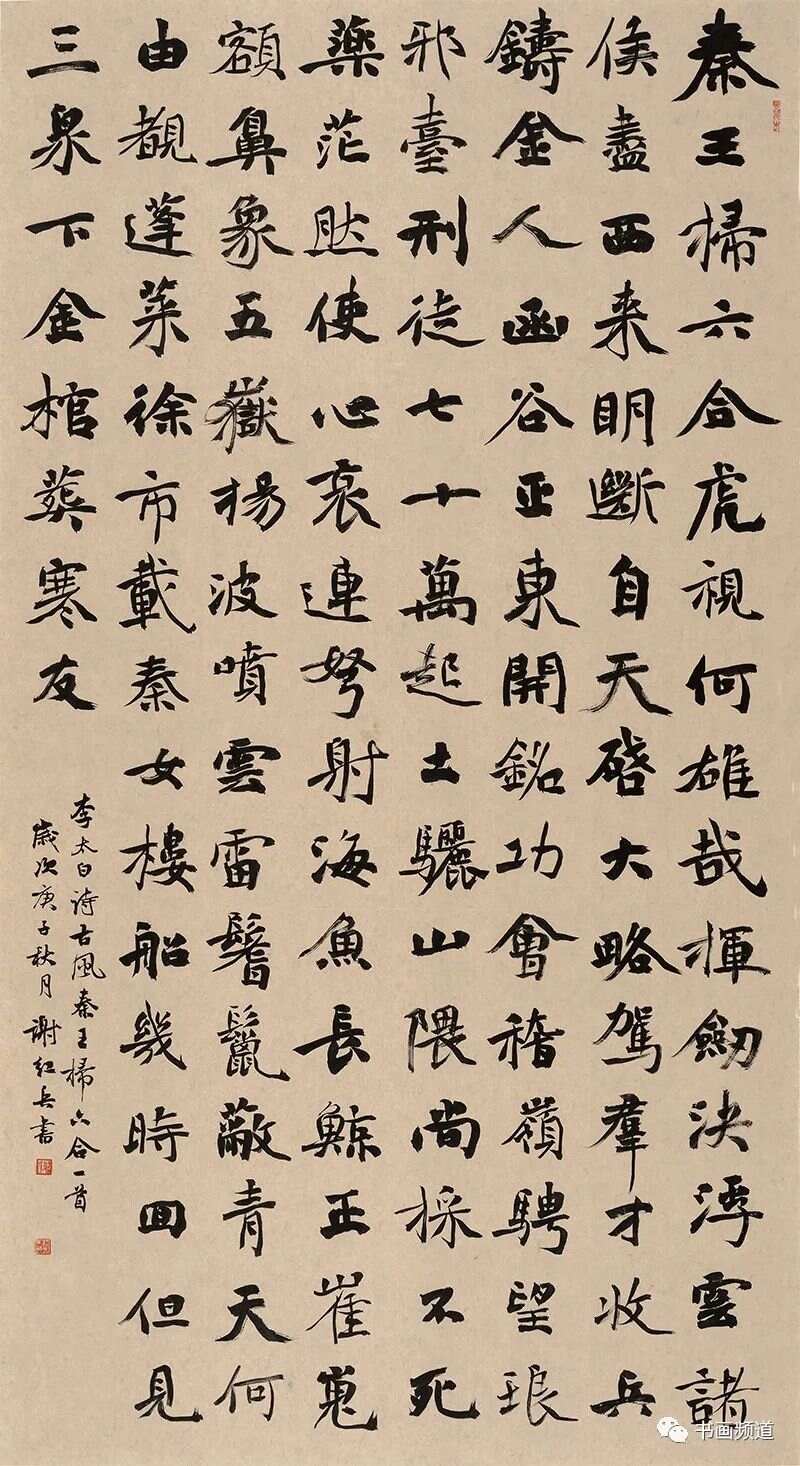 秦王掃六合虎視何雄哉揮劒決浮雲諸
侯盡西来明斷自天啓大略駕羣才收兵
鑄金人函谷正東開銘功會稽嶺騁望琅
邪臺刑徒七十萬起土驪山隈尚採不死
藥茫然使心哀連弩射海魚長鯨正崔嵬
額鼻象五嶽揚波噴雲雷鬐鬣蔽青天何
由覩蓬萊徐市載秦女樓船幾時回但見
三泉下金棺葬寒灰
李太白詩古風秦王掃六合一首
歲次庚子秋月謝红兵書
书画频道